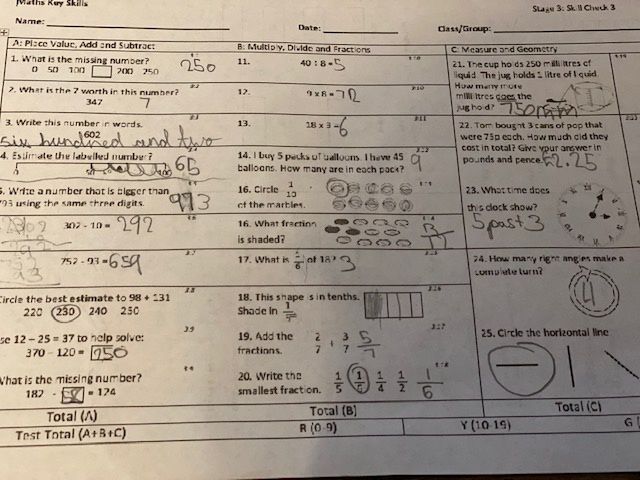 Maths Key Skills
Stage 3: Skill Check 3
Name:
Date:
Class/Group:
A: Place Value, Add and Subtract
1. What is the missing number?
0 50 100 200 250
250
2. What is the 7 worth in this number?
347
7
3. Write this number in words.
602
six hundred and two
4. Estimate the labelled number?
65
5. Write a number that is bigger than
793 using the same three digits.
973
302 - 10 = 292
752 - 93 = 659
Circle the best estimate to 98 + 131
220 230 240 250
se 12 - 25 = 37 to help solve:
370 - 120 = 250
What is the missing number?
182 - = 124
Total (A)
Test Total (A+B+C)
B: Multiply, Divide and Fractions
11. 40 ÷ 8 = 5
12. 9 x 8 = 72
13. 18 ÷ 3 = 6
14. I buy 5 packs of balloons. I have 45
balloons. How many are in each pack?
9
15. Circle 1/10
of the marbles.
16. What fraction
is shaded?
17. What is 1/6 of 18? 3
18. This shape is in tenths.
Shade in
19. Add the 2/7 + 3/7 5/7
fractions.
20. Write the 1/5 1/6 1/4 1/2 1/6
smallest fraction.
Total (B)
R (0-9)
C: Measure and Geometry
21. The cup holds 250 millilitres of
liquid. The jug holds 1 litre of liquid.
How many more
millilitres does the
jug hold? 750
22. Tom bought 3 cans of pop that
were 75p each. How much did they
cost in total? Give your answer in
pounds and pence. £2.25
23. What time does
this clock show?
5 past 3
24. How many right angles make a
complete turn?
4
25. Circle the horizontal line
Total (C)
Y (10-19)
G